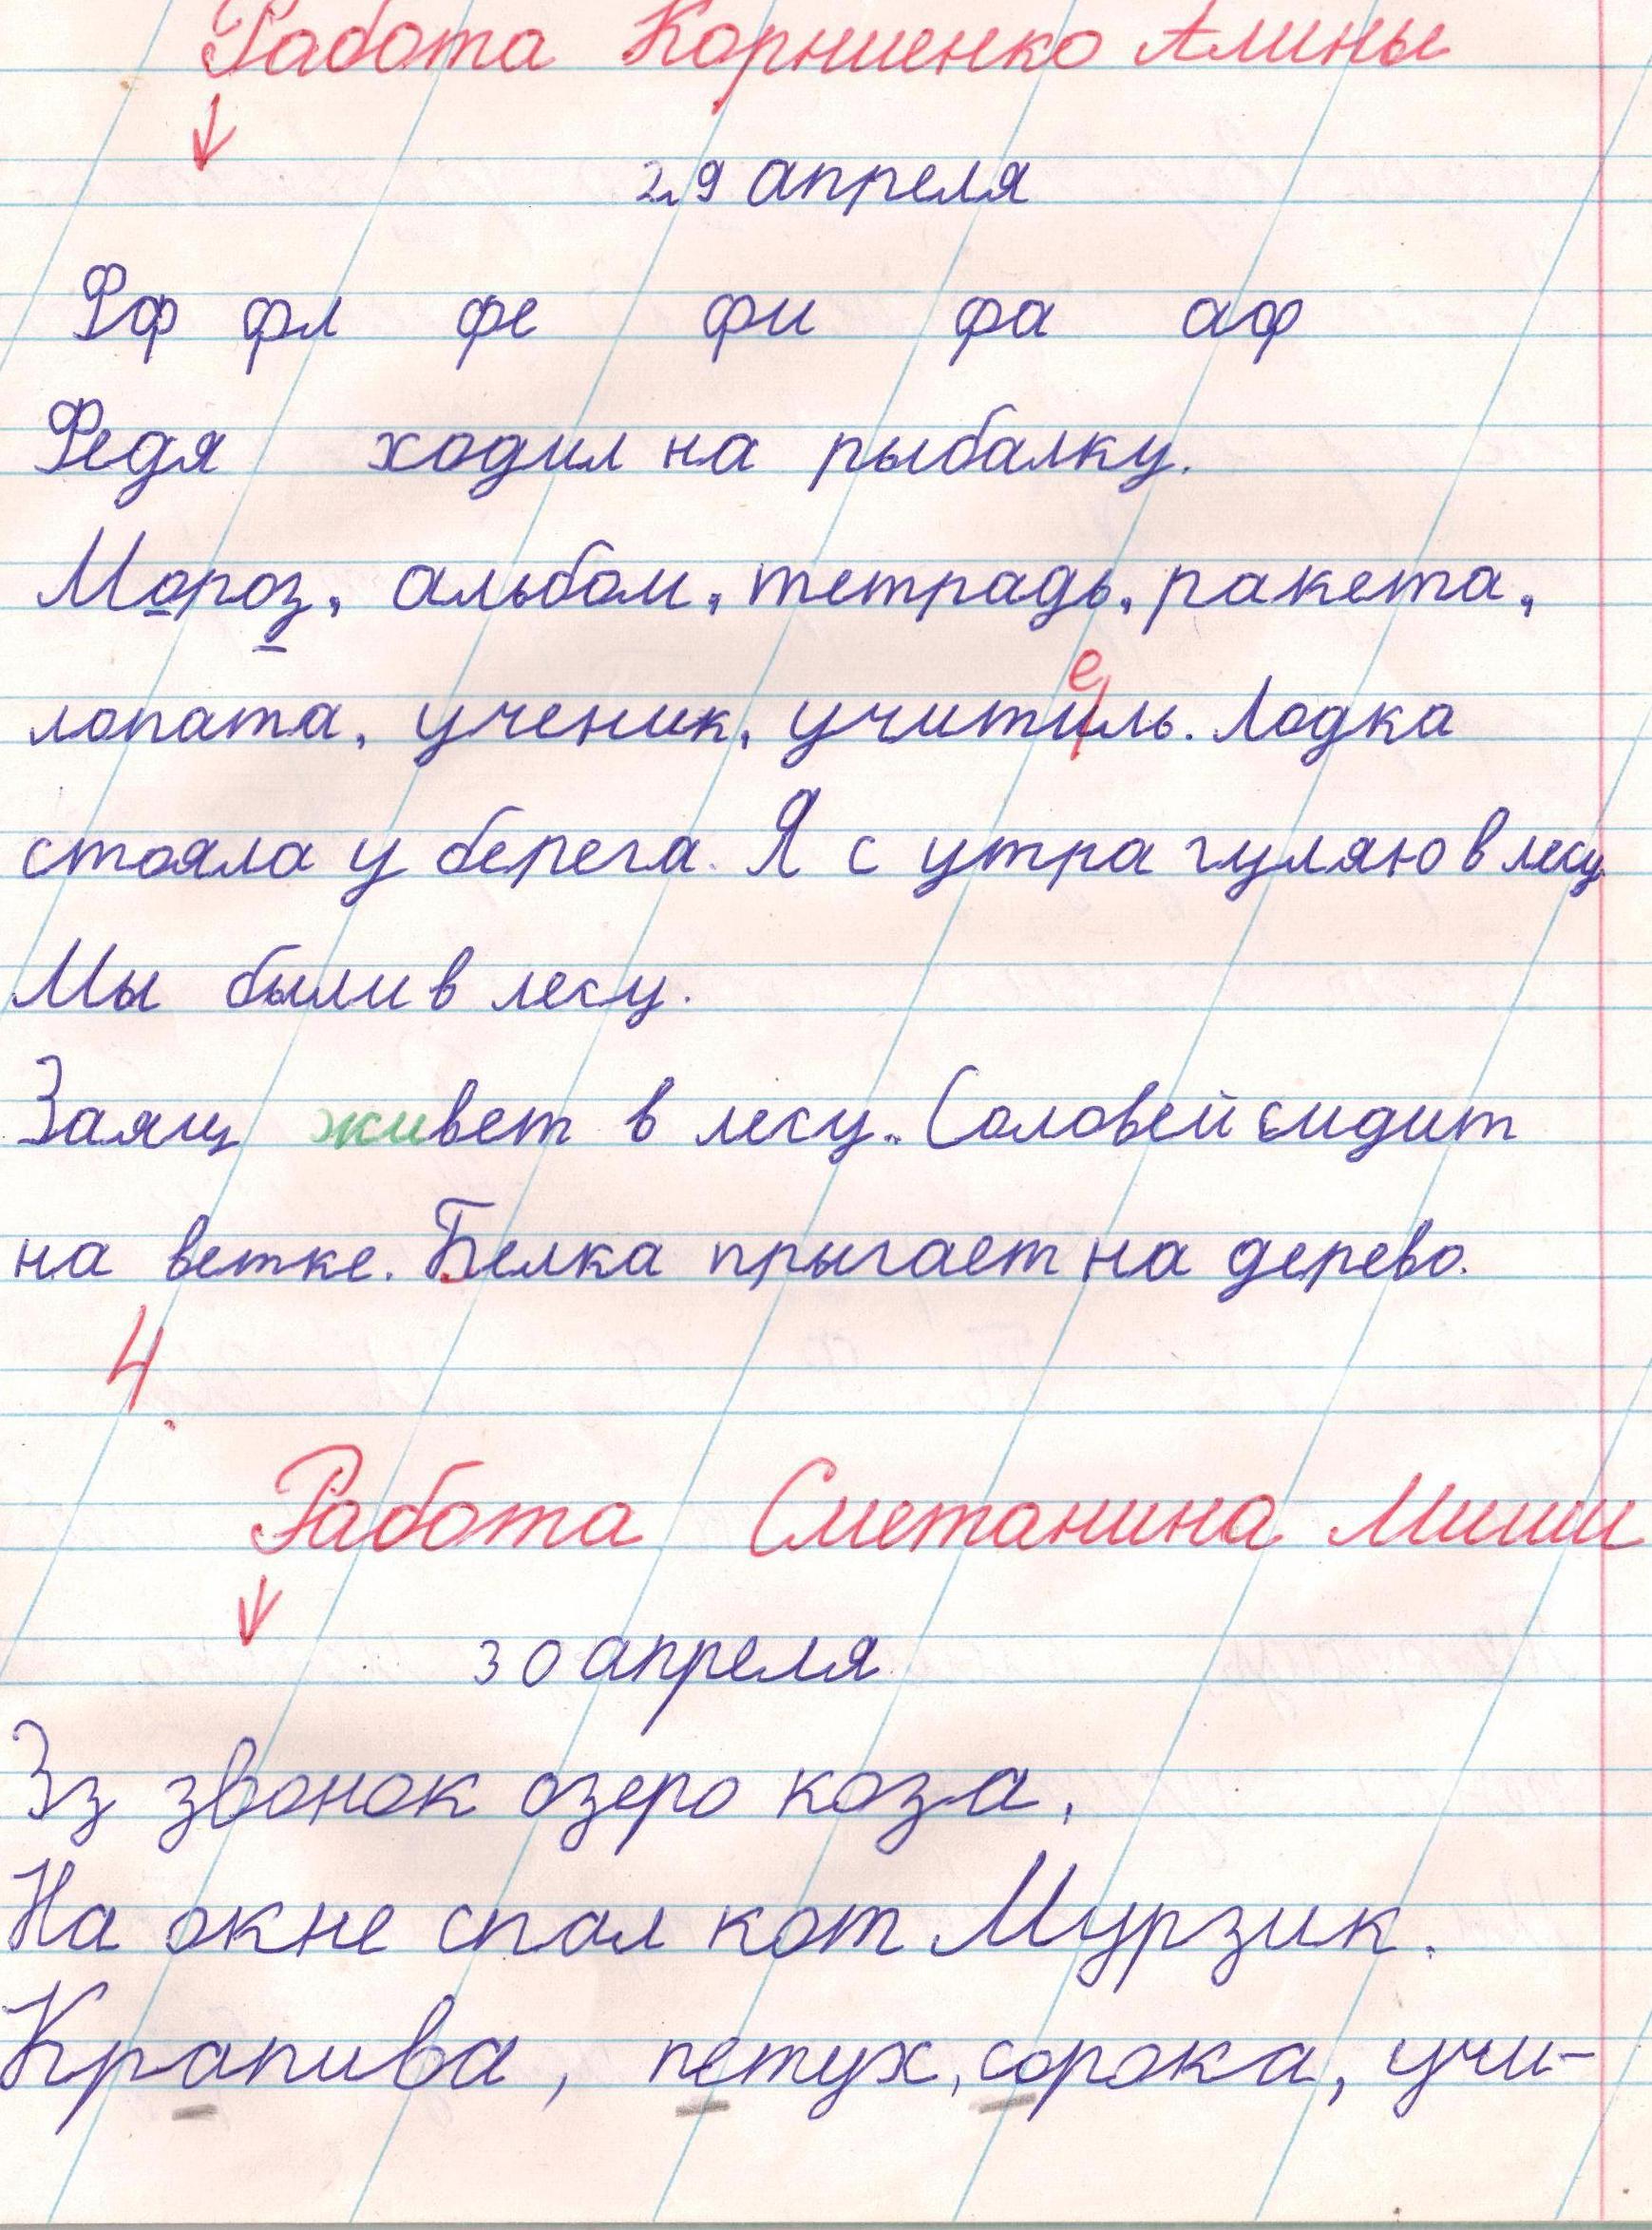 Работа Корниенко Алины
29 апреля
Фф фл фе фи фа аф
Федя ходил на рыбалку.
Мороз, альбом, тетрадь, ракета,
е
лопата, ученик, учитиль. Лодка
стояла у берега. Я с утра гуляю в лесу.
Мы были в лесу.
Заяц живет в лесу. Соловей сидит
на ветке. Белка прыгает на дерево.
4.
Работа Сметанина Миши
30 апреля
Зз звонок озеро коза.
На окне спал кот Мурзик.
Крапива, петух, сорока, учи-